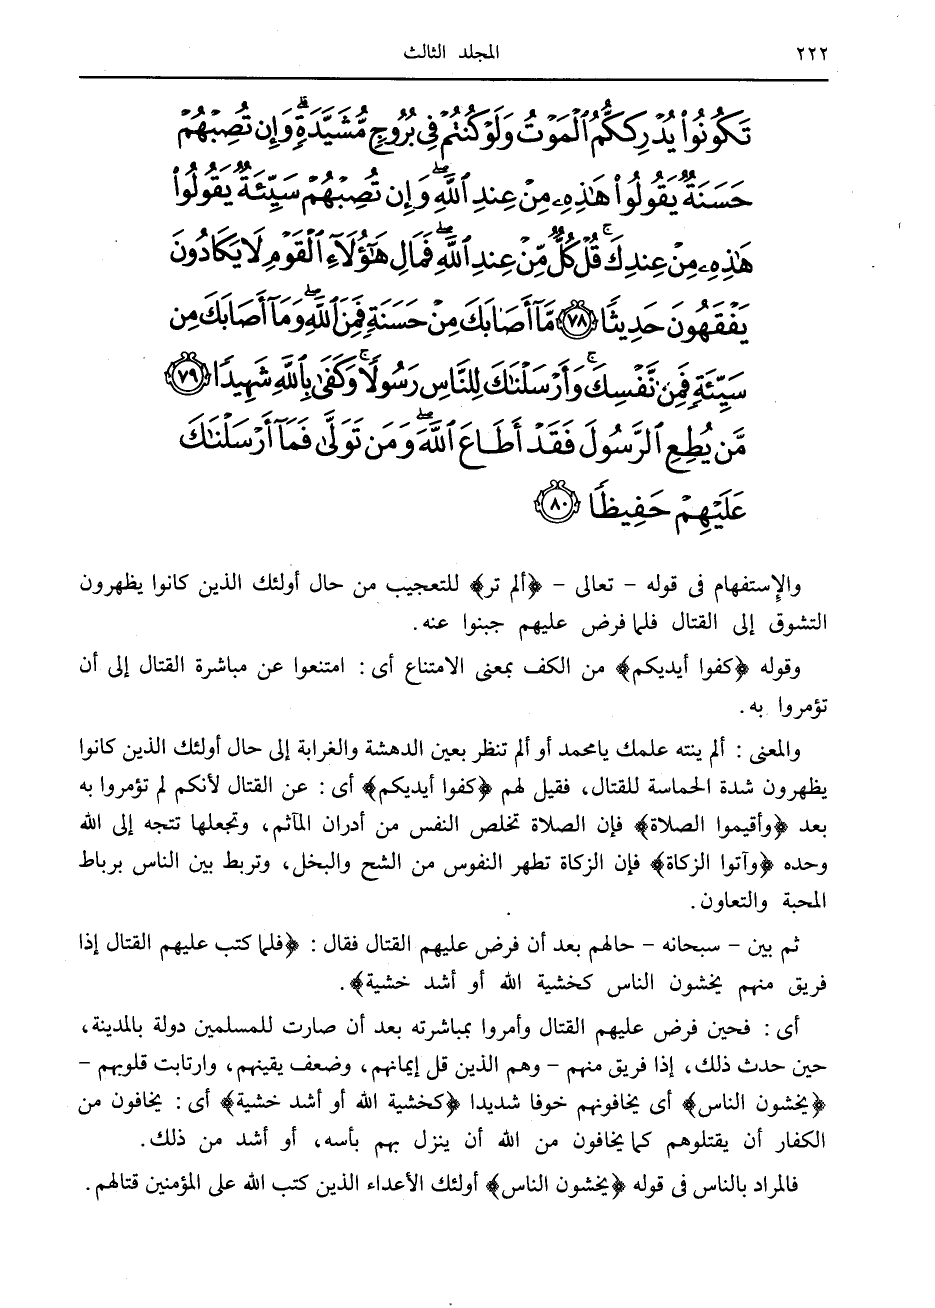 ٢٢٢ المجلد الثالث
تَكُونُوا۟ يُدْرِككُّمُ ٱلْمَوْتُ وَلَوْ كُنتُمْ فِى بُرُوجٍ مُّشَيَّدَةٍ ۗ وَإِن تُصِبْهُمْ
حَسَنَةٌ يَقُولُوا۟ هَٰذِهِۦ مِنْ عِندِ ٱللَّهِ ۖ وَإِن تُصِبْهُمْ سَيِّئَةٌ يَقُولُوا۟
هَٰذِهِۦ مِنْ عِندِكَ ۚ قُلْ كُلٌّ مِّنْ عِندِ ٱللَّهِ ۖ فَمَالِ هَٰٓؤُلَآءِ ٱلْقَوْمِ لَا يَكَادُونَ
يَفْقَهُونَ حَدِيثًا ﴿٧٨﴾ مَّآ أَصَابَكَ مِنْ حَسَنَةٍ فَمِنَ ٱللَّهِ ۖ وَمَآ أَصَابَكَ مِن
سَيِّئَةٍ فَمِن نَّفْسِكَ ۚ وَأَرْسَلْنَٰكَ لِلنَّاسِ رَسُولًا ۚ وَكَفَىٰ بِٱللَّهِ شَهِيدًا ﴿٧٩﴾
مَّن يُطِعِ ٱلرَّسُولَ فَقَدْ أَطَاعَ ٱللَّهَ ۖ وَمَن تَوَلَّىٰ فَمَآ أَرْسَلْنَٰكَ
عَلَيْهِمْ حَفِيظًا ﴿٨٠﴾
والإستفهام فى قوله - تعالى - ﴿ألم تر﴾ للتعجيب من حال أولئك الذين كانوا يظهرون
التشوق إلى القتال فلما فرض عليهم جبنوا عنه.
وقوله ﴿كفوا أيديكم﴾ من الكف بمعنى الامتناع أى : امتنعوا عن مباشرة القتال إلى أن
تؤمروا به.
والمعنى : ألم ينته علمك يامحمد أو ألم تنظر بعين الدهشة والغرابة إلى حال أولئك الذين كانوا
يظهرون شدة الحماسة للقتال، فقيل لهم ﴿كفوا أيديكم﴾ أى : عن القتال لأنكم لم تؤمروا به
بعد ﴿وأقيموا الصلاة﴾ فإن الصلاة تخلص النفس من أدران المآثم، وتجعلها تتجه إلى الله
وحده ﴿وآتوا الزكاة﴾ فإن الزكاة تطهر النفوس من الشح والبخل، وتربط بين الناس برباط
المحبة والتعاون.
ثم بين - سبحانه - حالهم بعد أن فرض عليهم القتال فقال : ﴿فلما كتب عليهم القتال إذا
فريق منهم يخشون الناس كخشية الله أو أشد خشية﴾.
أى : فحين فرض عليهم القتال وأمروا بمباشرته بعد أن صارت للمسلمين دولة بالمدينة،
حين حدث ذلك، إذا فريق منهم - وهم الذين قل إيمانهم، وضعف يقينهم، وارتابت قلوبهم -
﴿يخشون الناس﴾ أى يخافونهم خوفا شديدا ﴿كخشية الله أو أشد خشية﴾ أى : يخافون من
الكفار أن يقتلوهم كما يخافون من الله أن ينزل بهم بأسه، أو أشد من ذلك.
فالمراد بالناس فى قوله ﴿يخشون الناس﴾ أولئك الأعداء الذين كتب الله على المؤمنين قتالهم.